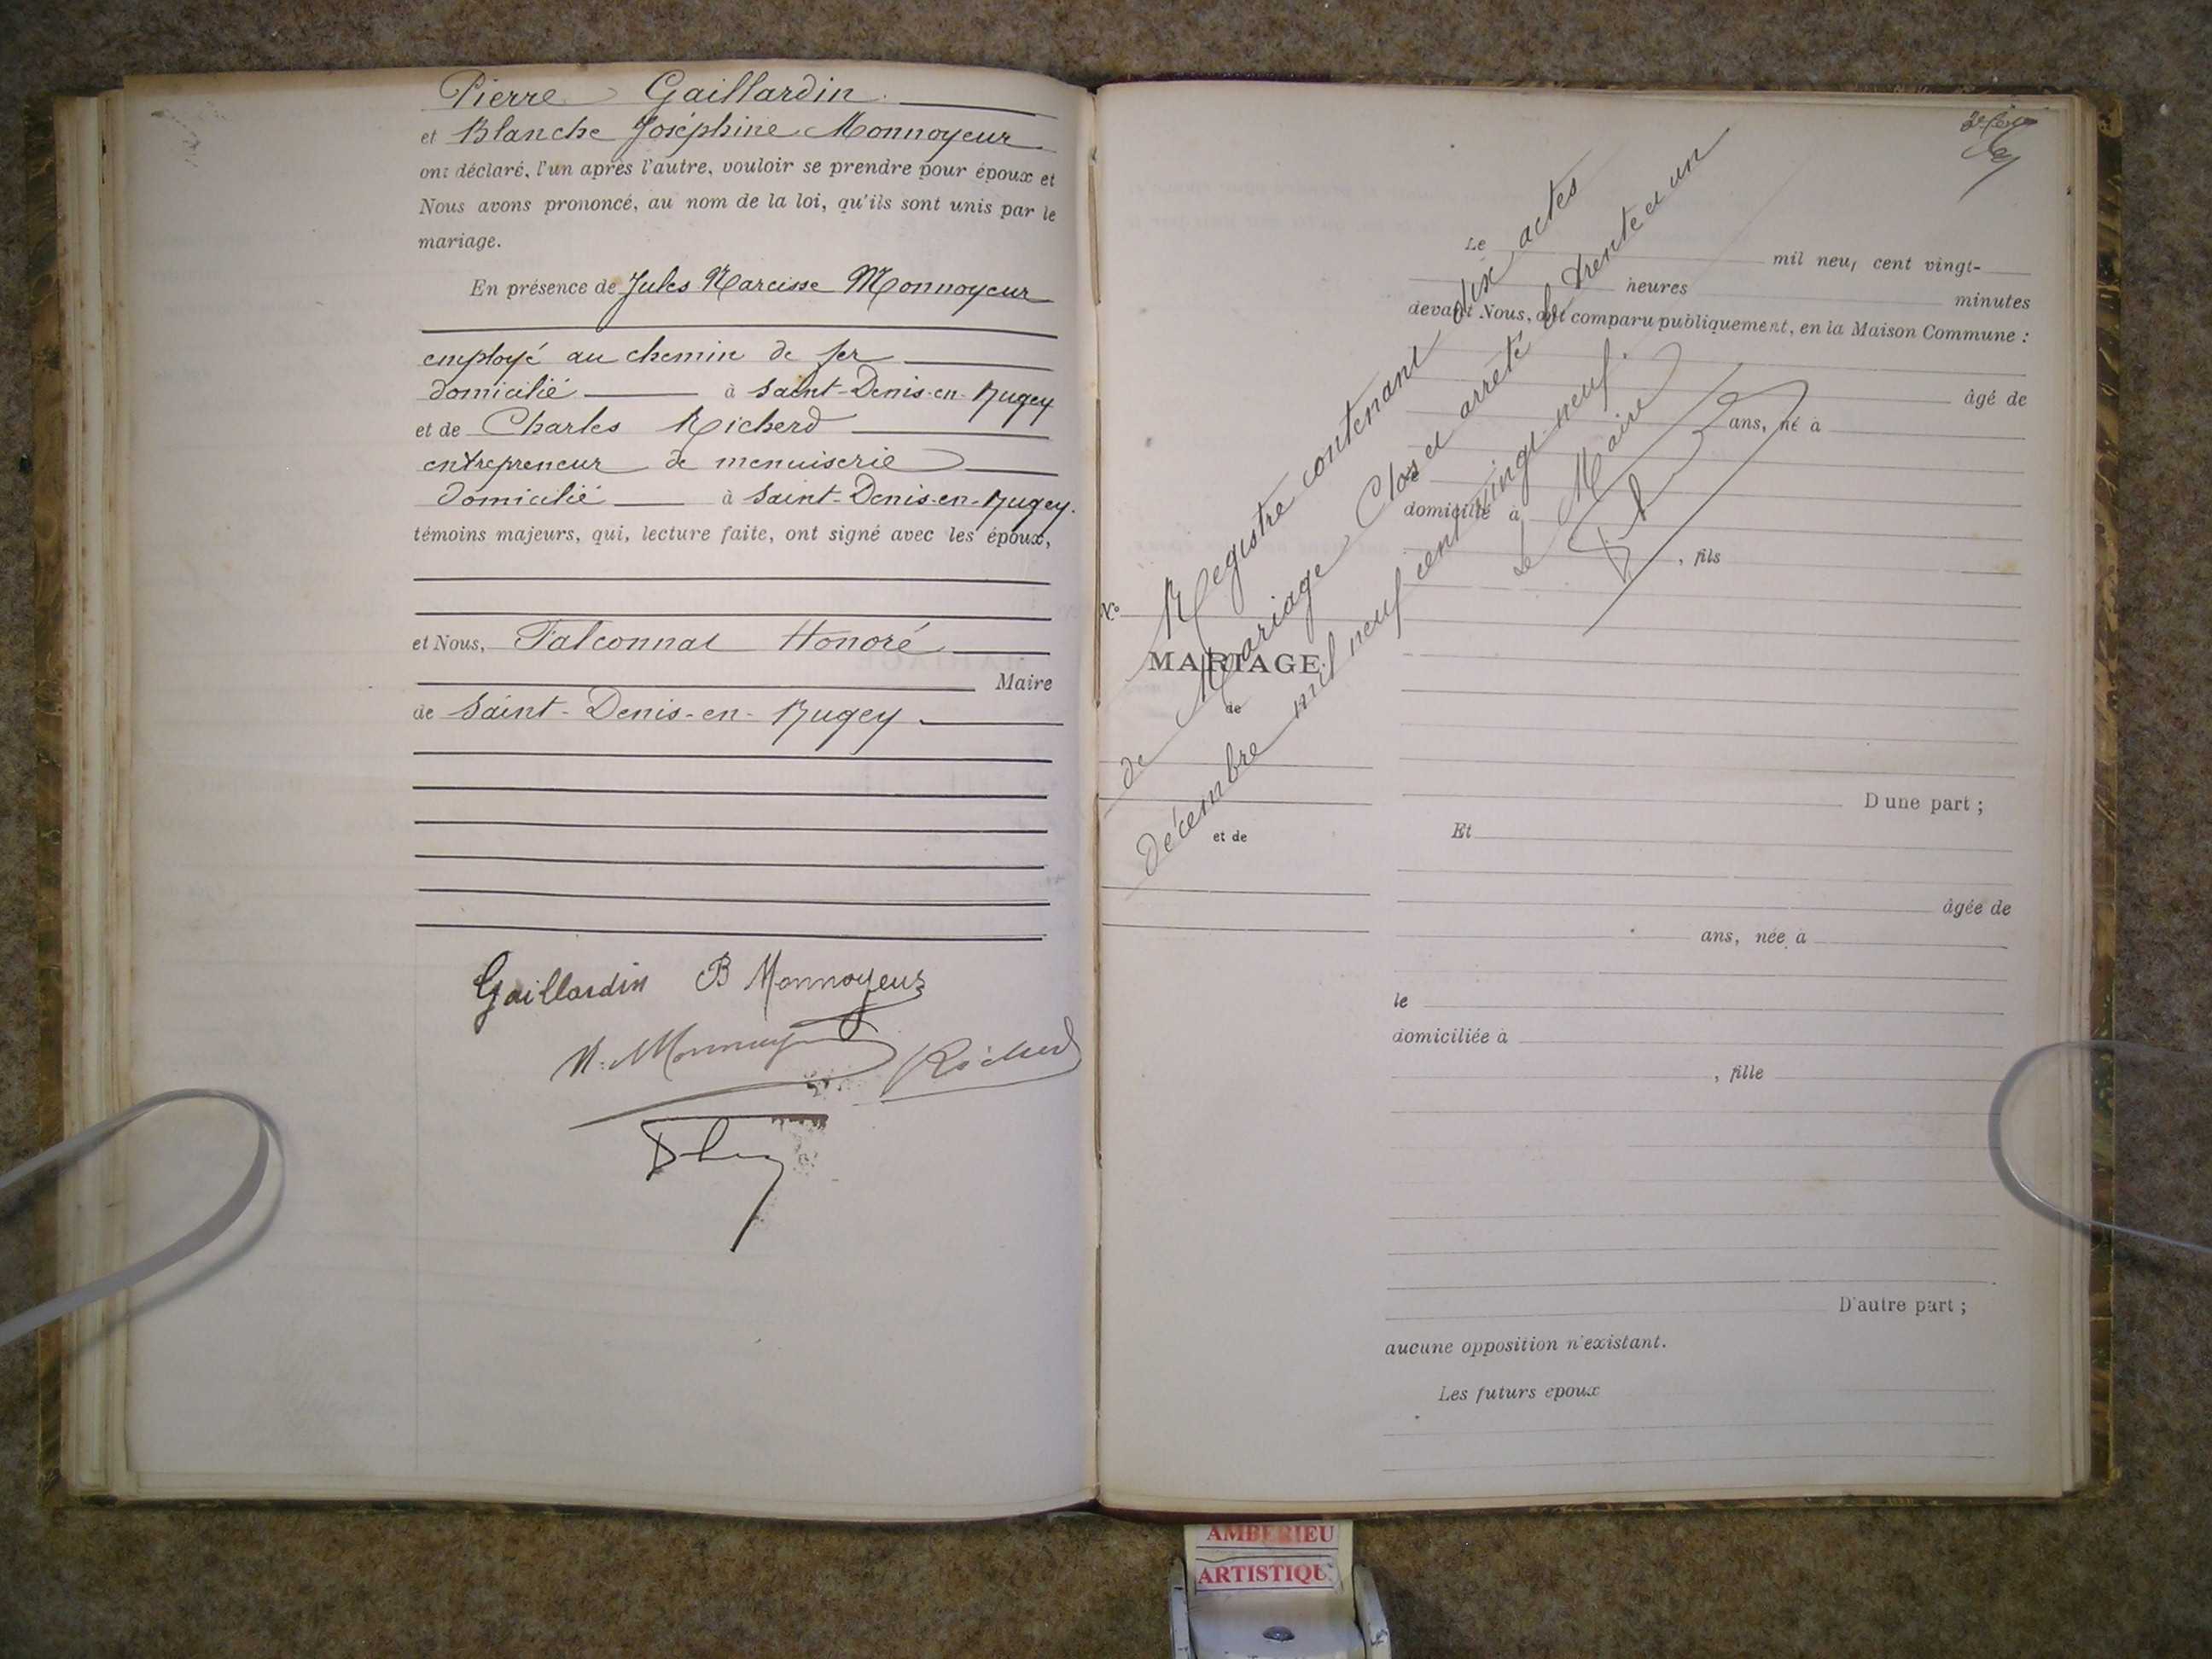 Pierre Gaillardin
et Blanche Joséphine Monnoyeur
ont déclaré, l'un après l'autre, vouloir se prendre pour époux et
Nous avons prononcé, au nom de la loi, qu'ils sont unis par le
mariage.
En présence de Jules Narcisse Monnoyeur
employé au chemin de fer
domicilié à Saint-Denis-en-Bugey
et de Charles Richerd
entrepreneur de menuiserie
domicilié à Saint-Denis-en-Bugey.
témoins majeurs, qui, lecture faite, ont signé avec les époux,
et Nous, Falconnat Honoré
Maire
de Saint-Denis-en-Bugey
Gaillardin B Monnoyeur
N. Monnoyeur Richerd
Le
mil neuf cent vingt-
heures minutes
devant Nous, ont comparu publiquement, en la Maison Commune :
âgé de
ans, né à
le
domicilié à
, fils
D'une part ;
Et
âgée de
ans, née à
le
domiciliée à
, fille
D'autre part ;
aucune opposition n'existant.
Les futurs époux
No
MARIAGE
de
et de
Registre contenant dix actes
de Mariage Clos et arrêté le trente et un
décembre mil neuf cent vingt neuf.
Le Maire
AMBERIEU
ARTISTIQUE